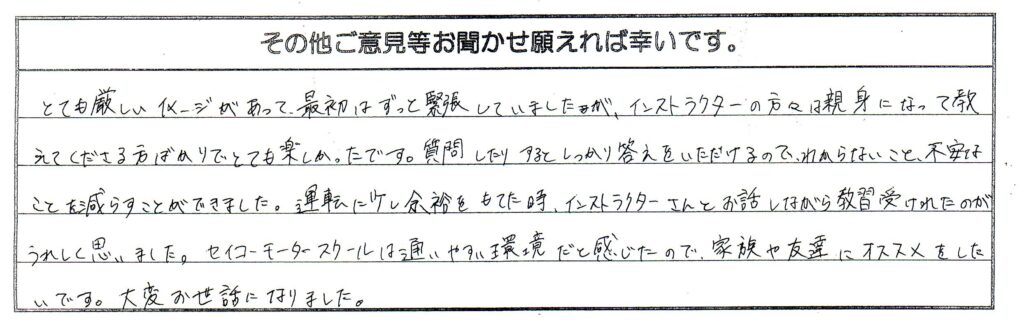 その他ご意見等お聞かせ願えれば幸いです。
とても厳しいイメージがあって、最初はずっと緊張していましたが、インストラクターの方々は親身になって教
えてくださる方ばかりでとても楽しかったです。質問したりするとしっかり答えをいただけるので、わからないこと、不安な
ことを減らすことができました。運転に少し余裕をもてた時、インストラクターさんとお話しながら教習受けれたのが
うれしく思いました。セイコーモータースクールは通いやすい環境だと感じたので、家族や友達にオススメをした
いです。大変お世話になりました。